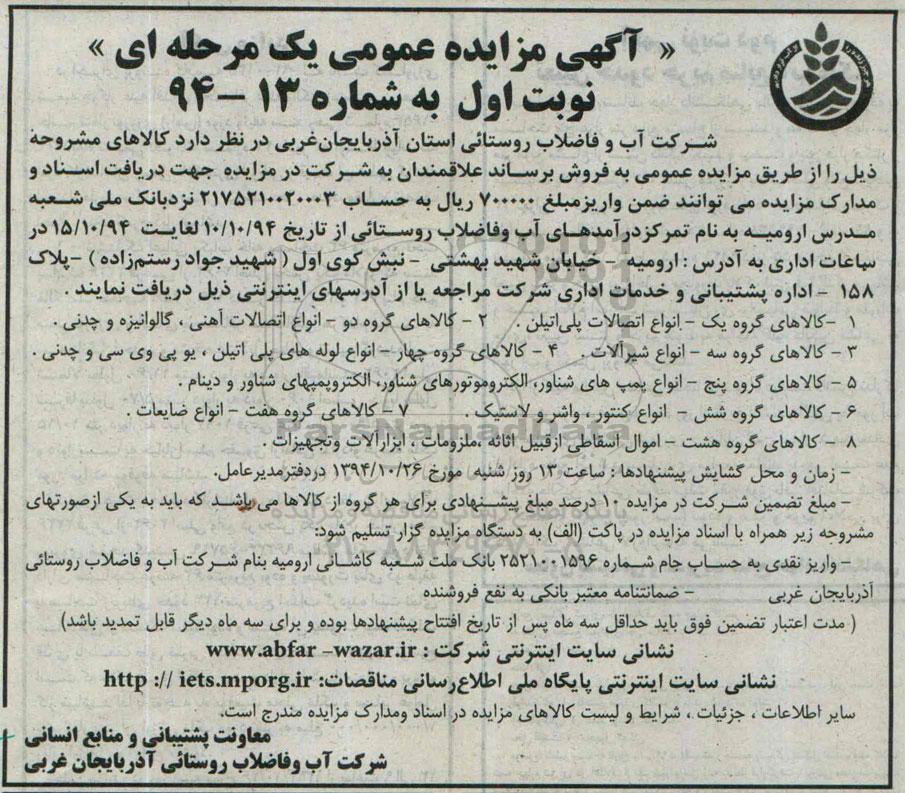 « آگهی مزایده عمومی یک مرحله ای »
نوبت اول به شماره ۱۳ – ۹۴
شرکت آب و فاضلاب روستائی استان آذربایجان‌غربی در نظر دارد کالاهای مشروحه
ذیل را از طریق مزایده عمومی به فروش برساند علاقمندان به شرکت در مزایده جهت دریافت اسناد و
مدارک مزایده می توانند ضمن واریزمبلغ ۷۰۰۰۰۰ ریال به حساب ۲۱۷۵۲۱۰۰۲۰۰۰۳ نزدبانک ملی شعبه
مدرس ارومیه به نام تمرکزدرآمدهای آب وفاضلاب روستائی از تاریخ ۱۰/۱۰/۹۴ لغایت ۱۵/۱۰/۹۴ در
ساعات اداری به آدرس : ارومیه – خیابان شهید بهشتی – نبش کوی اول ( شهید جواد رستم‌زاده ) –پلاک
۱۵۸ – اداره پشتیبانی و خدمات اداری شرکت مراجعه یا از آدرسهای اینترنتی ذیل دریافت نمایند .
۱ –کالاهای گروه یک – انواع اتصالات پلی‌اتیلن . ۲ – کالاهای گروه دو – انواع اتصالات آهنی ، گالوانیزه و چدنی .
۳ – کالاهای گروه سه – انواع شیرآلات . ۴ – کالاهای گروه چهار – انواع لوله های پلی اتیلن ، یو پی وی سی و چدنی .
۵ – کالاهای گروه پنج – انواع پمپ های شناور، الکتروموتورهای شناور، الکتروپمپهای شناور و دینام .
۶ – کالاهای گروه شش – انواع کنتور ، واشر و لاستیک . ۷ – کالاهای گروه هفت – انواع ضایعات .
۸ – کالاهای گروه هشت – اموال اسقاطی ازقبیل اثاثه ،ملزومات ، ابزارآلات وتجهیزات .
– زمان و محل گشایش پیشنهادها : ساعت ۱۳ روز شنبه مورخ ۱۳۹۴/۱۰/۲۶ دردفترمدیرعامل.
– مبلغ تضمین شرکت در مزایده ۱۰ درصد مبلغ پیشنهادی برای هر گروه از کالاها می باشد که باید به یکی ازصورتهای
مشروحه زیر همراه با اسناد مزایده در پاکت (الف) به دستگاه مزایده گزار تسلیم شود:
– واریز نقدی به حساب جام شماره ۲۵۲۱۰۰۱۵۹۶ بانک ملت شعبه کاشانی ارومیه بنام شرکت آب و فاضلاب روستائی
آذربایجان غربی – ضمانتنامه معتبر بانکی به نفع فروشنده
( مدت اعتبار تضمین فوق باید حداقل سه ماه پس از تاریخ افتتاح پیشنهادها بوده و برای سه ماه دیگر قابل تمدید باشد)
نشانی سایت اینترنتی شرکت : www.abfar –wazar.ir
نشانی سایت اینترنتی پایگاه ملی اطلاع‌رسانی مناقصات: http :// iets.mporg.ir
سایر اطلاعات ، جزئیات ، شرایط و لیست کالاهای مزایده در اسناد ومدارک مزایده مندرج است.
معاونت پشتیبانی و منابع انسانی
شرکت آب وفاضلاب روستائی آذربایجان غربی
ParsNamadData